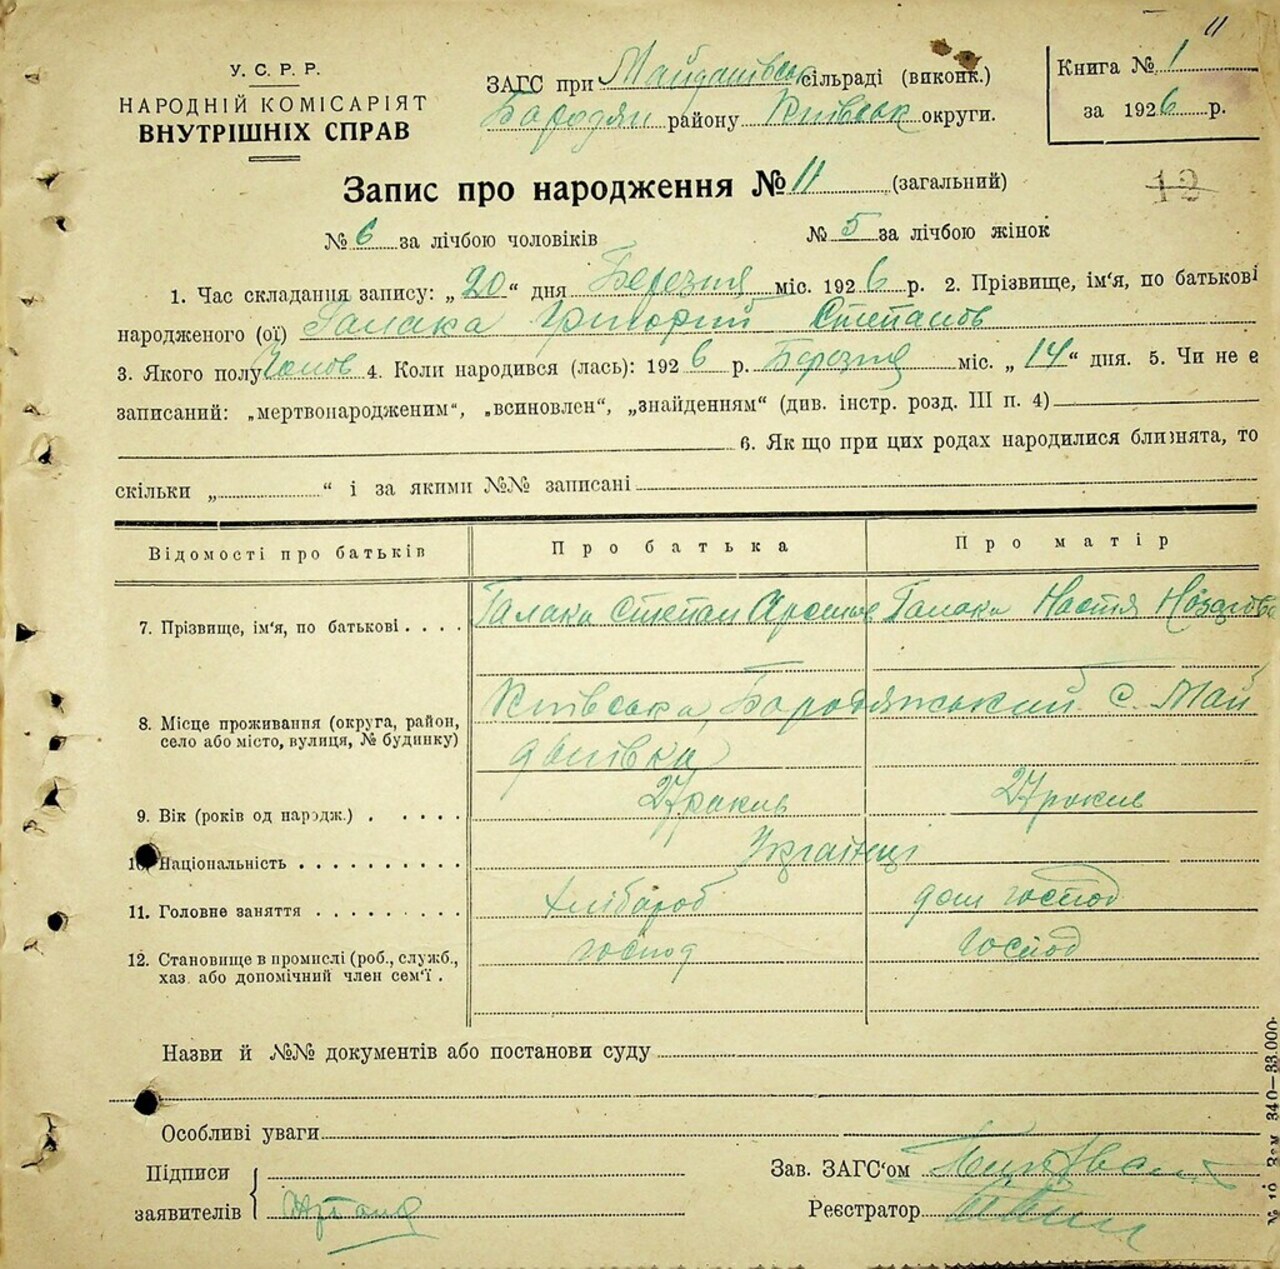 11
У. С. Р. Р.
НАРОДНІЙ КОМІСАРІЯТ
ВНУТРІШНІХ СПРАВ
ЗАГС при Майданівськ сільраді (виконк.)
Бородян району Київськ округи.
Книга № 1
за 1926 р.
Запис про народження № 11 (загальний)
12
№ 6 за лічбою чоловіків № 5 за лічбою жінок
1. Час складання запису: „20“ дня Березня міс. 1926 р. 2. Прізвище, ім‘я, по батькові
народженого (ої) Галака Григорій Степанов
3. Якого полу Чолов 4. Коли народився (лась): 1926 р. Березня міс. „14“ дня. 5. Чи не є
записаний: „мертвонародженим“, „всиновлен“, „знайденням“ (див. інстр. розд. III п. 4)
6. Як що при цих родах народилися близнята, то
скільки „ “ і за якими №№ записані
Відомості про батьків Про батька Про матір
7. Прізвище, ім‘я, по батькові . . . . Галака Степан Галака Настя
8. Місце проживання (округа, район, село або місто, вулиця, № будинку) Київська, Бородянський с. Май
данівка
9. Вік (років од народж.) . . . . . 27 рокив 27 рокив
10. Національність . . . . . . . . . . Українці
11. Головне заняття . . . . . . . . . хлібароб дом господ
12. Становище в промислі (роб., служб., хаз. або допомічний член сем‘ї . господ господ
Назви й №№ документів або постанови суду
Особливі уваги
Підписи
заявителів
Зав. ЗАГС‘ом
Реєстратор
№ 10 Зам 340—33.000.